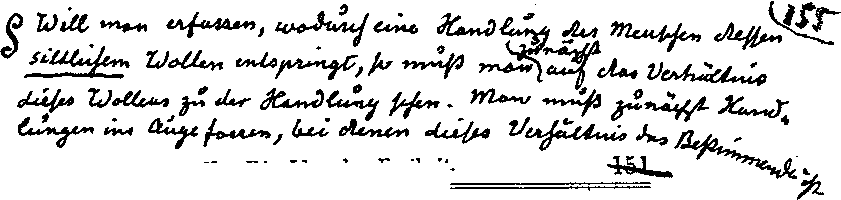 155
§ Will man erfassen, wodurch eine Handlung des Menschen dessen
sittlichem Wollen entspringt, so muß man zunächst auf das Verhältnis
dieses Wollens zu der Handlung sehen. Man muß zunächst Hand-
lungen ins Auge fassen, bei denen dieses Verhältnis das Bestimmende ist
151